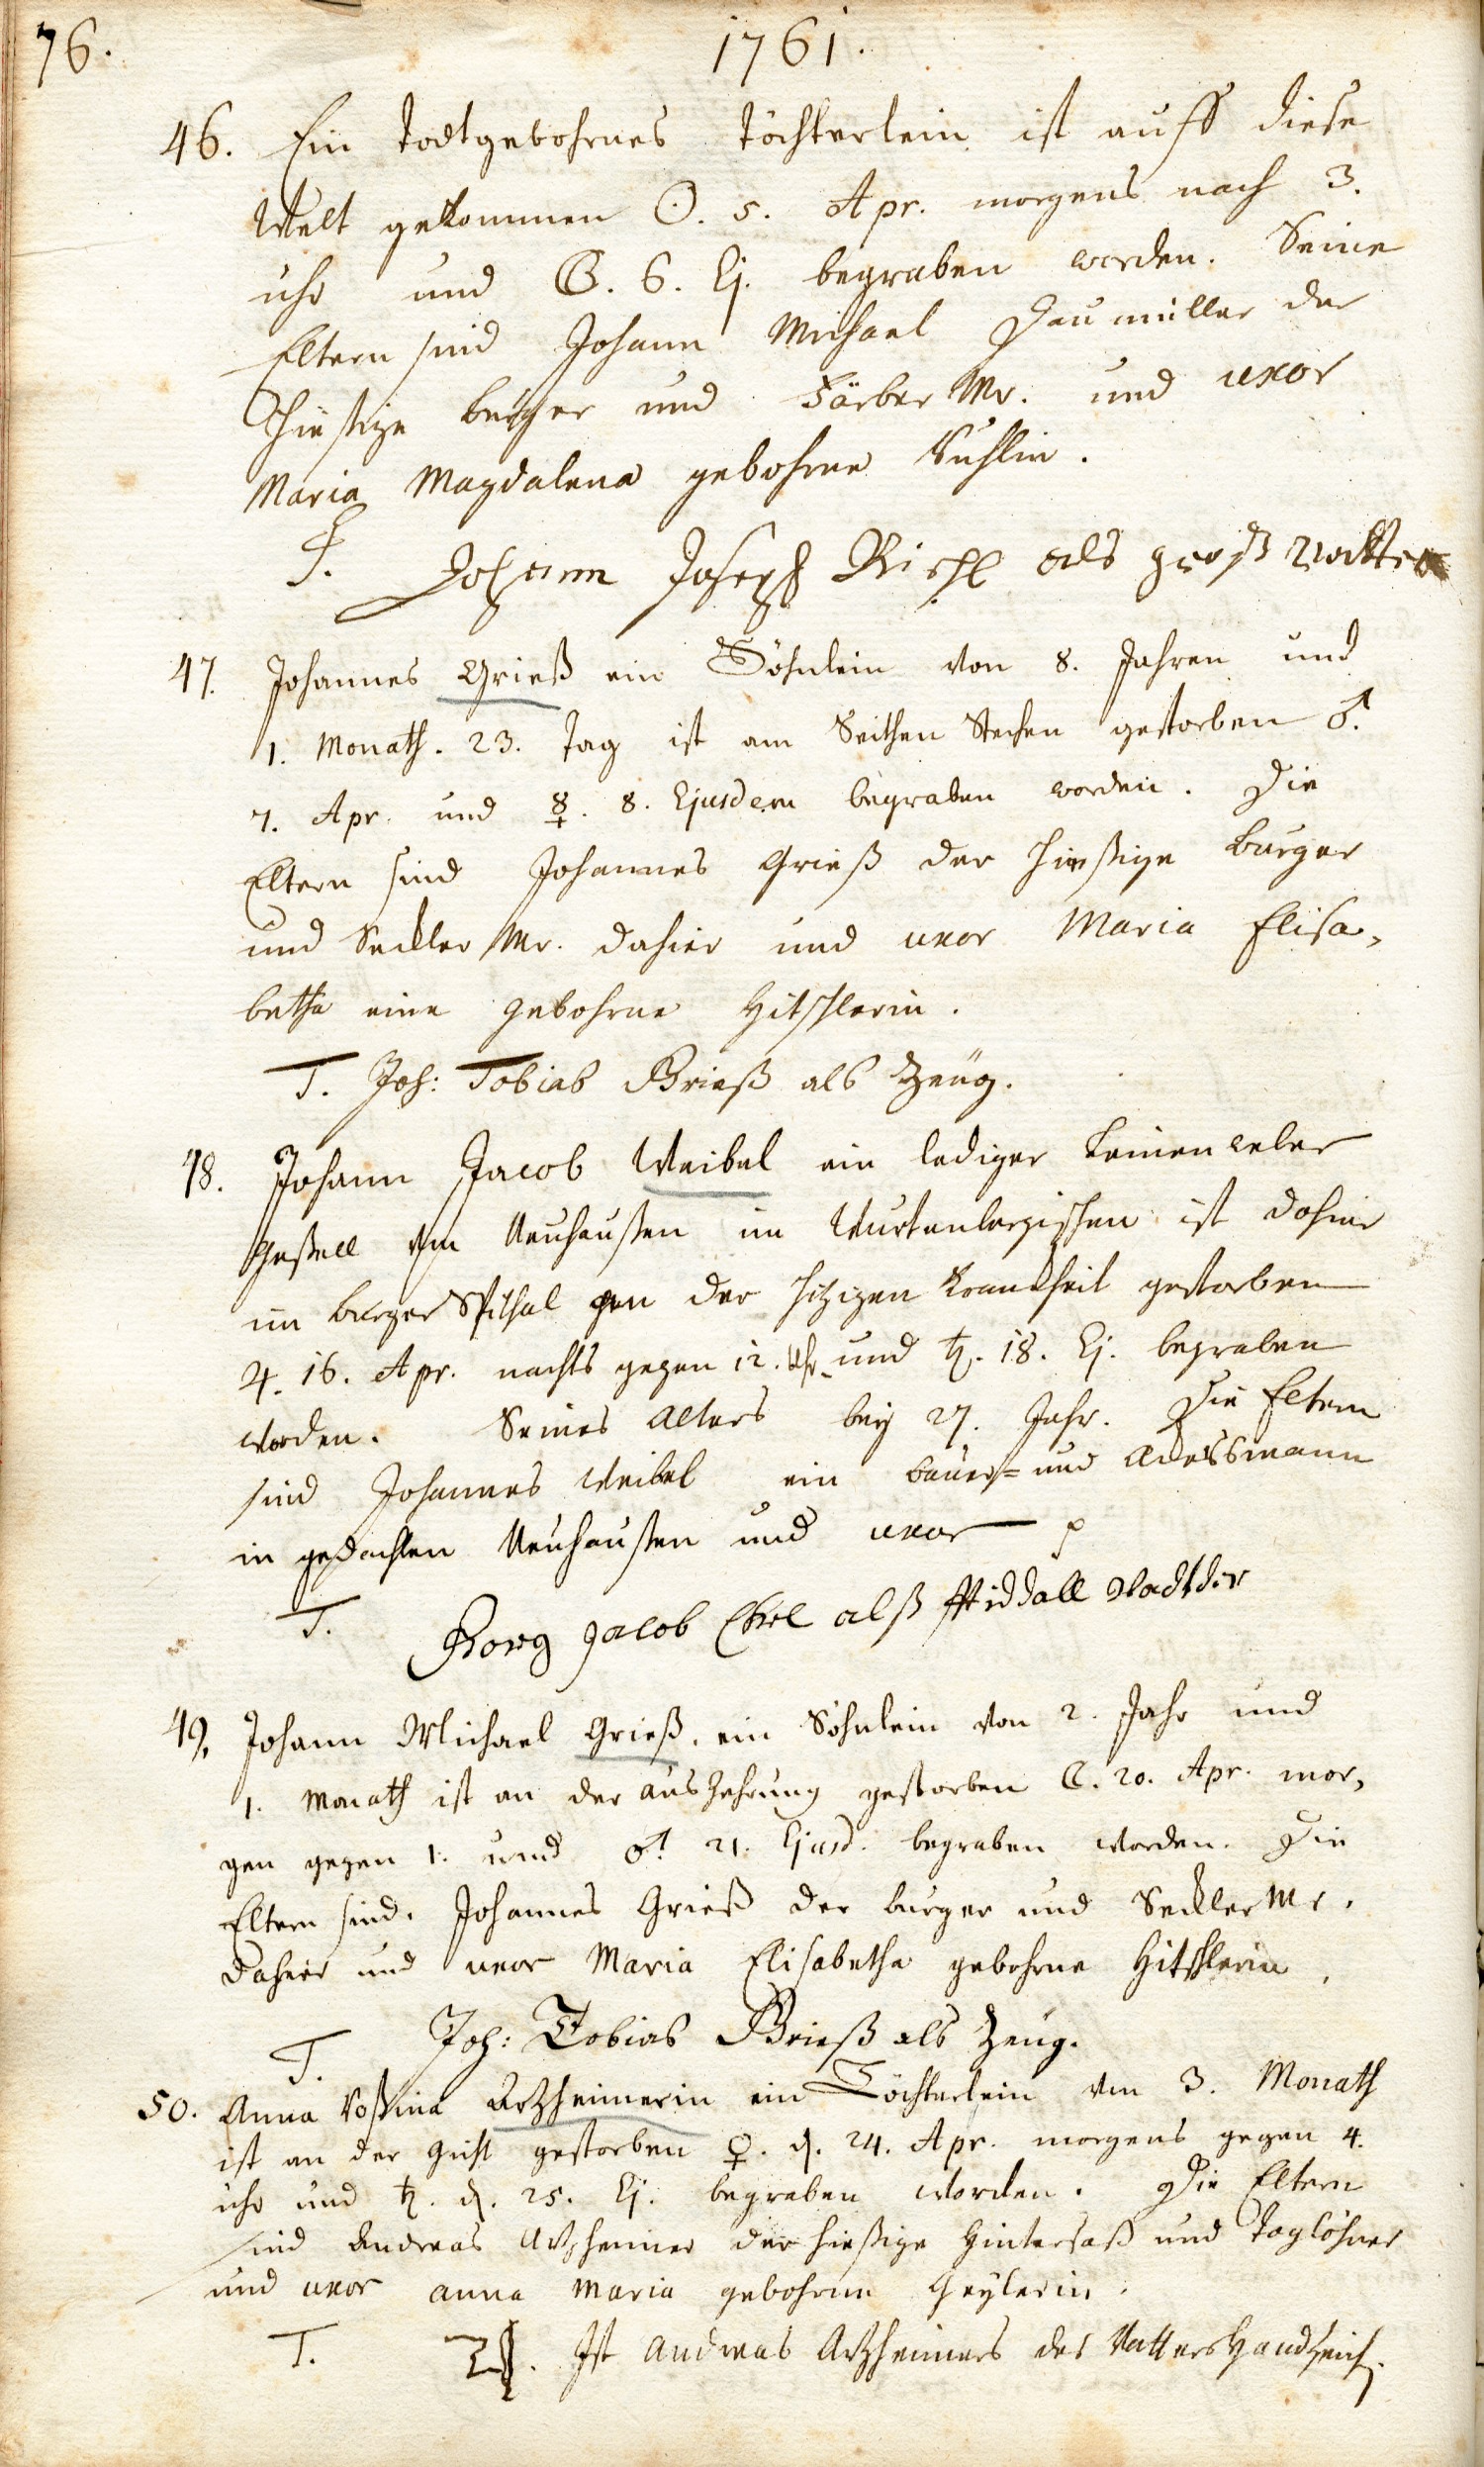 76.
1761.
46. Ein todtgebohrnes Töchterlein ist auff diese
Welt gekommen ☉. 5. Apr. morgens nach 3.
uhr und ☾. 6. Ej. begraben worden. Seine
Eltern sind Johann Michael Daumüller der
hiesige burger und Färber Mr. und uxor
Maria Magdalena gebohrne Ruhlin.
T. Johann Joseph als groß Vatter
47. Johannes Grieß ein Söhnlein von 8. Jahren und
1. Monath. 23. Tag ist am Seithen Stechen gestorben ♂.
7. Apr. und ☿. 8. Ejusdem begraben worden. Die
Eltern sind Johannes Grieß der hießige burger
und Seckler Mr. dahier und uxor Maria Elisa,
betha eine gebohrne Hitschlerin.
T. Joh: Tobias Brieß als Zeüg.
48. Johann Jacob Weibel ein lediger Leinenweber
Gesell von Neuhaußen im Wurtenbergischen ist dahier
im burger Spithal an der hizigen Kranckheit gestorben
♃. 16. Apr. nachts gegen 12. Uhr und ♄. 18. Ej. begraben
worden. Seines Alters bey 27. Jahr. Die Eltern
sind Johannes Weibel ein bauers= und Ackersmann
in gedachten Neuhaußen und uxor
T. Georg Jacob alß Spiddall Vadtder
49. Johann Michael Grieß, ein Söhnlein von 2. Jahr und
1. Monath ist an der auszehrung gestorben ☾. 20. Apr. mor,
gen gegen 1. und ♂. 21. Ejusd. begraben worden. Die
Eltern sind. Johannes Grieß der burger und Seckler Mr.
dahier und uxor Maria Elisabetha gebohrne Hitschlerin.
T. Joh: Tobias Brieß als Zeug.
50. Anna Rosina Arzheimerin ein Töchterlein von 3. Monath
ist an der Gicht gestorben ♀. d. 24. Apr. morgens gegen 4.
uhr und ♄. d. 25. Ej. begraben worden. Die Eltern
sind Andreas Arzheimer der hießige Hintersaß und Taglöhner
und uxor Anna Maria gebohrne Geylerin.
T. Ist Andreas Arzheimers des Vatters Handzeich.